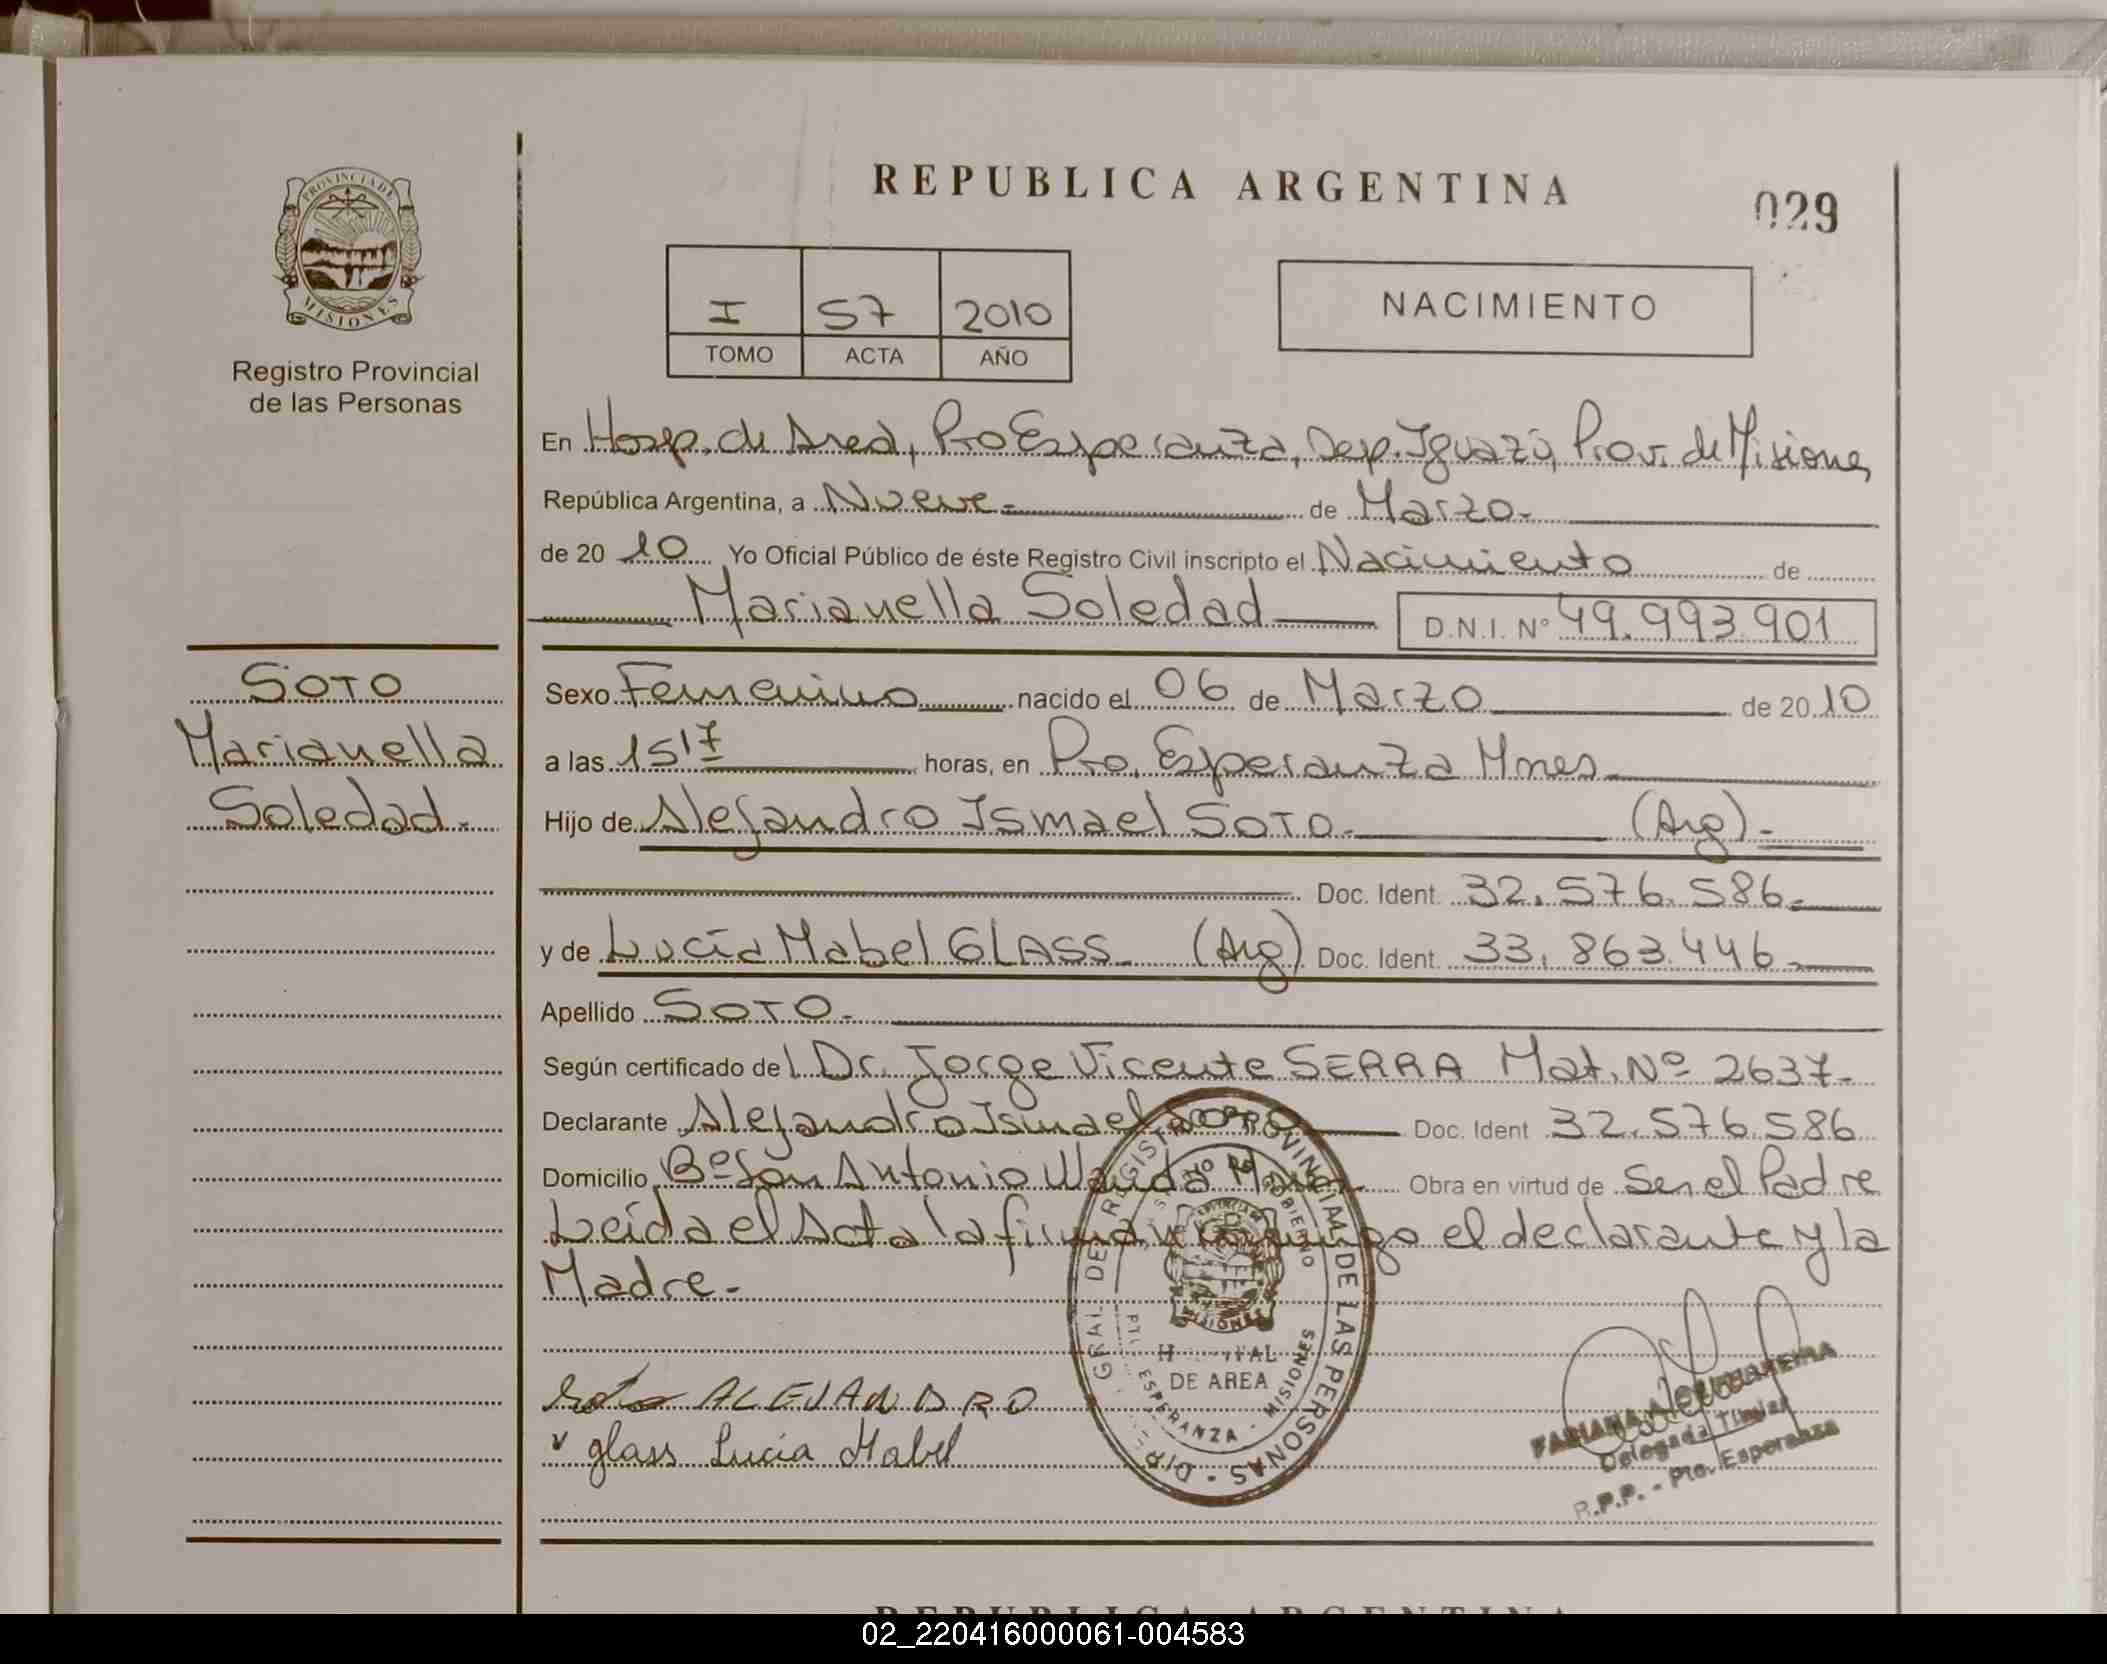 REPUBLICA ARGENTINA
029
PROVINCIA DE
MISIONES
Registro Provincial
de las Personas
I 57 2010
TOMO ACTA AÑO
NACIMIENTO
En Hosp. de Area, Pto Esperanza, Dep. Iguazú, Prov. de Misiones
República Argentina, a Nueve.- de Marzo.-
de 20 10 Yo Oficial Público de éste Registro Civil inscripto el Nacimiento de
Marianella Soledad
D.N.I. Nº 49.993.901
SOTO
Marianella
Soledad.-
Sexo Femenino nacido el 06 de Marzo de 20 10
a las 15 17 horas, en Pto. Esperanza Mnes.
Hijo de Alejandro Ismael SOTO.- (Arg).-
Doc. Ident. 32.576.586.-
y de Lucía Mabel GLASS.- (Arg) Doc. Ident. 33.863.446.-
Apellido SOTO.-
Según certificado del Dr. Jorge Vicente SERRA Mat. Nº 2637.-
Declarante Alejandro Ismael SOTO Doc. Ident 32.576.586
Domicilio Bº San Antonio Wanda Obra en virtud de Ser el Padre
Leída el Acta la firman conmigo el declarante y la
Madre.-
DIR. GRAL. DE REGISTRO PROVINCIAL DE LAS PERSONAS
GOBIERNO
MISIONES
DE AREA
ESPERANZA - MISIONES
Soto ALEJANDRO
glass Lucía Mabel
FABIANA
Delegada Titular
R.P.P. - Pto. Esperanza
REPUBLICA ARGENTINA
02_220416000061-004583